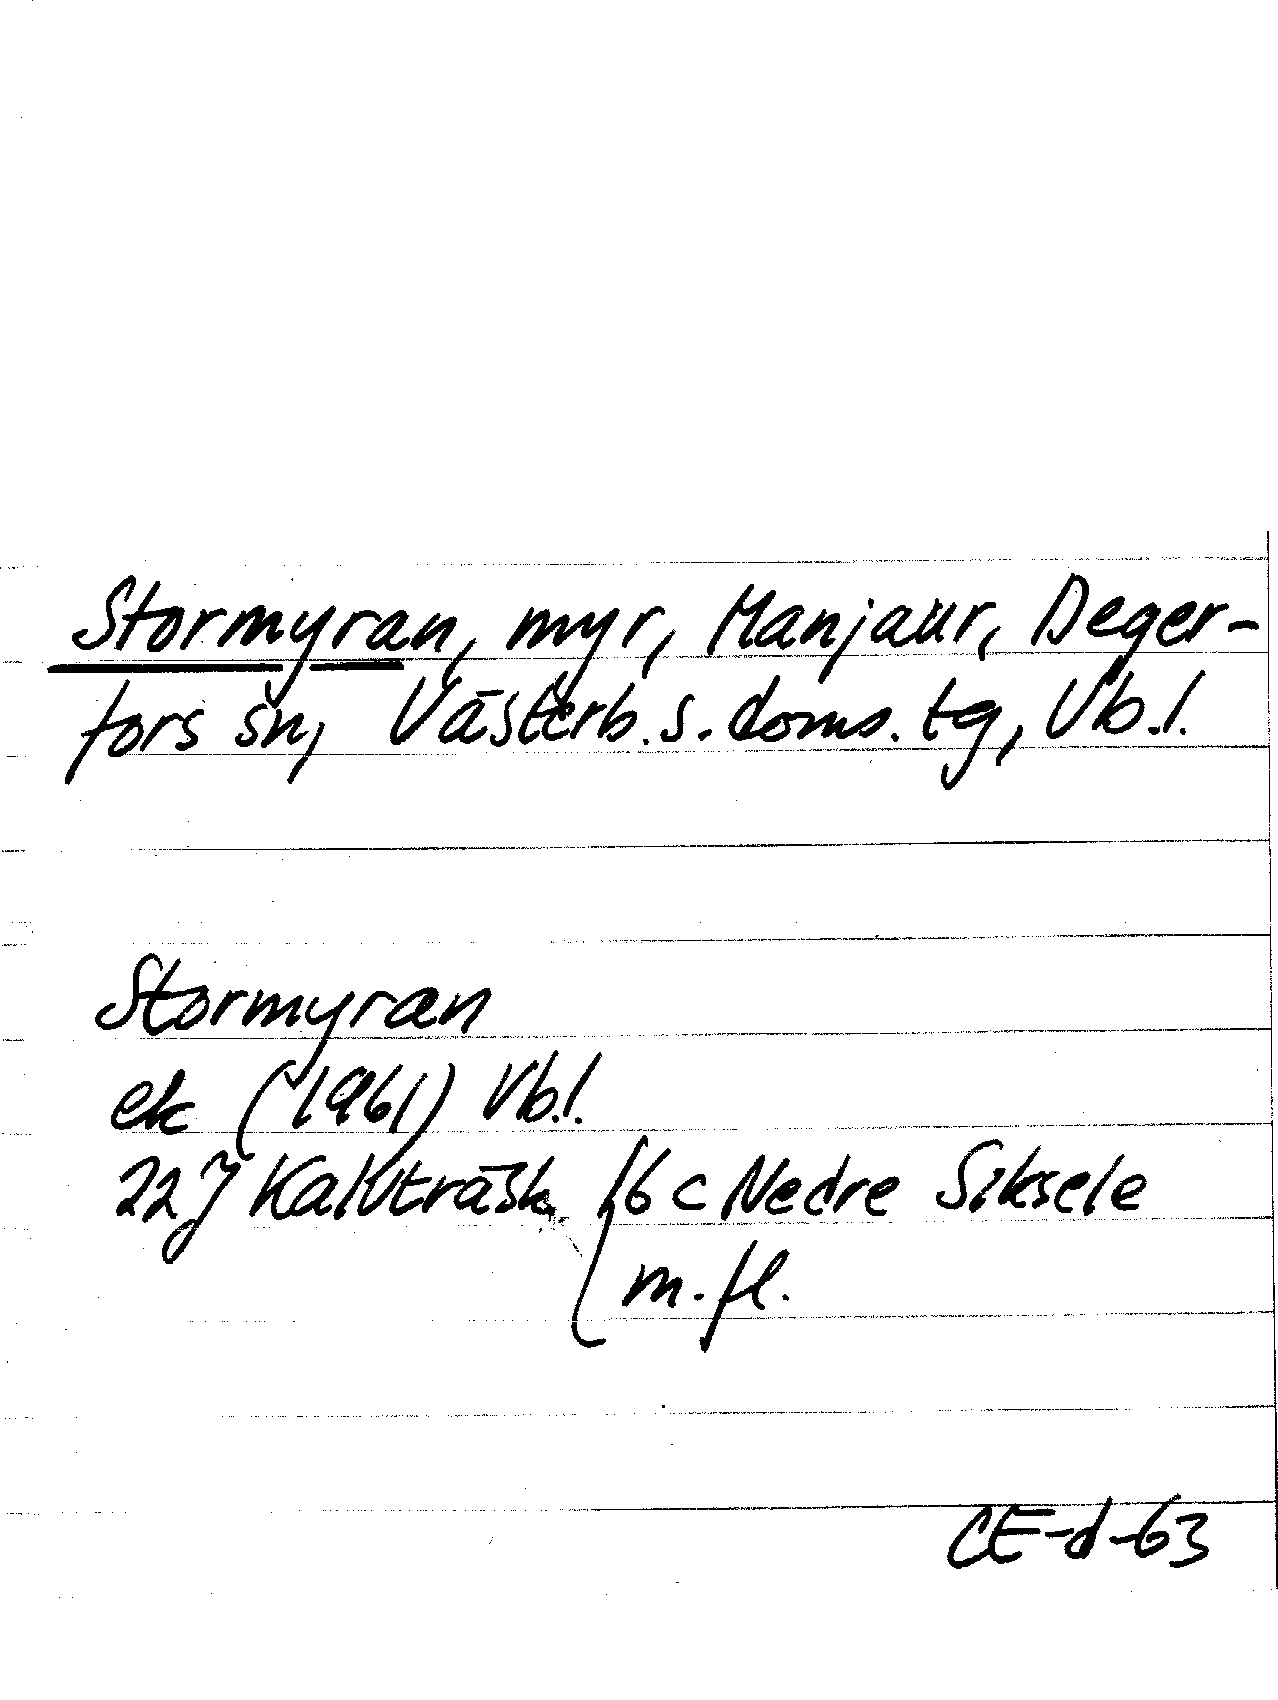 Stormyran, myr, Manjaur, Deger-
fors sn, Västerb. s. doms. tg, Vb. l.
Stormyran
ek (1961) Vb. l.
22J Kalvträsk 6 c Nedre Siksele
m. fl.
CE-d-63